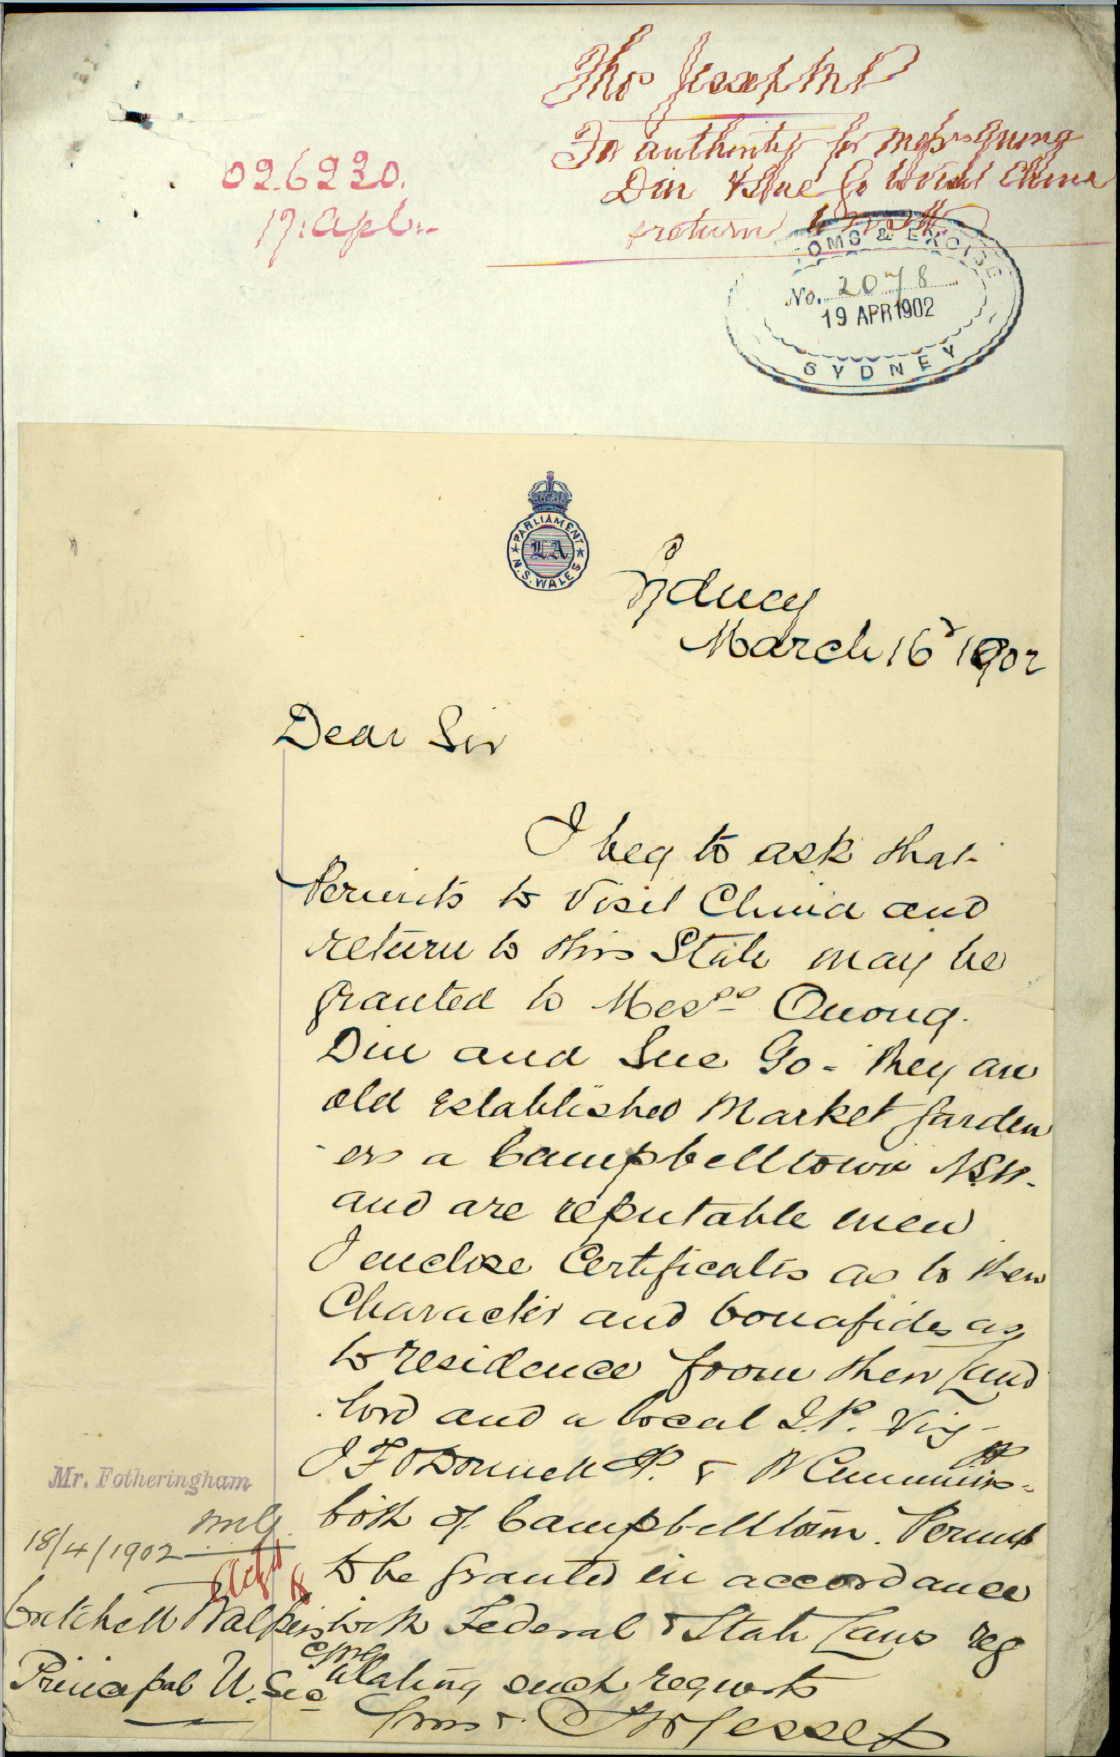 Thos Jessep M P
For authority for Messrs Quong
Din & Sue Go to visit China
& return to NSW
026230.
17: Apl:-
CUSTOMS & EXCISE
No. 2078
19 APR 1902
SYDNEY
PARLIAMENT
LA
N.S.WALES
Sydney
March 16 1902
Dear Sir
I beg to ask that
Permits to Visit China and
return to this State may be
granted to Messrs Quong.
Din and Sue Go - they are
old established Market garden
-ers a Campbelltown NSW.
and are reputable men
I enclose Certificates as to their
Character and bonafides as
to residence from their Land
lord and a local J.P. Viz-
J F O'Donnell JP. & W Cummins JP-
both of Campbelltown. Permits
to be granted in accordance
with Federal & State Laws reg
ulating such requests
Yours & Thos Jessep
Mr. Fotheringham
18/4/1902
Critchett Walker
Principal U. Sec